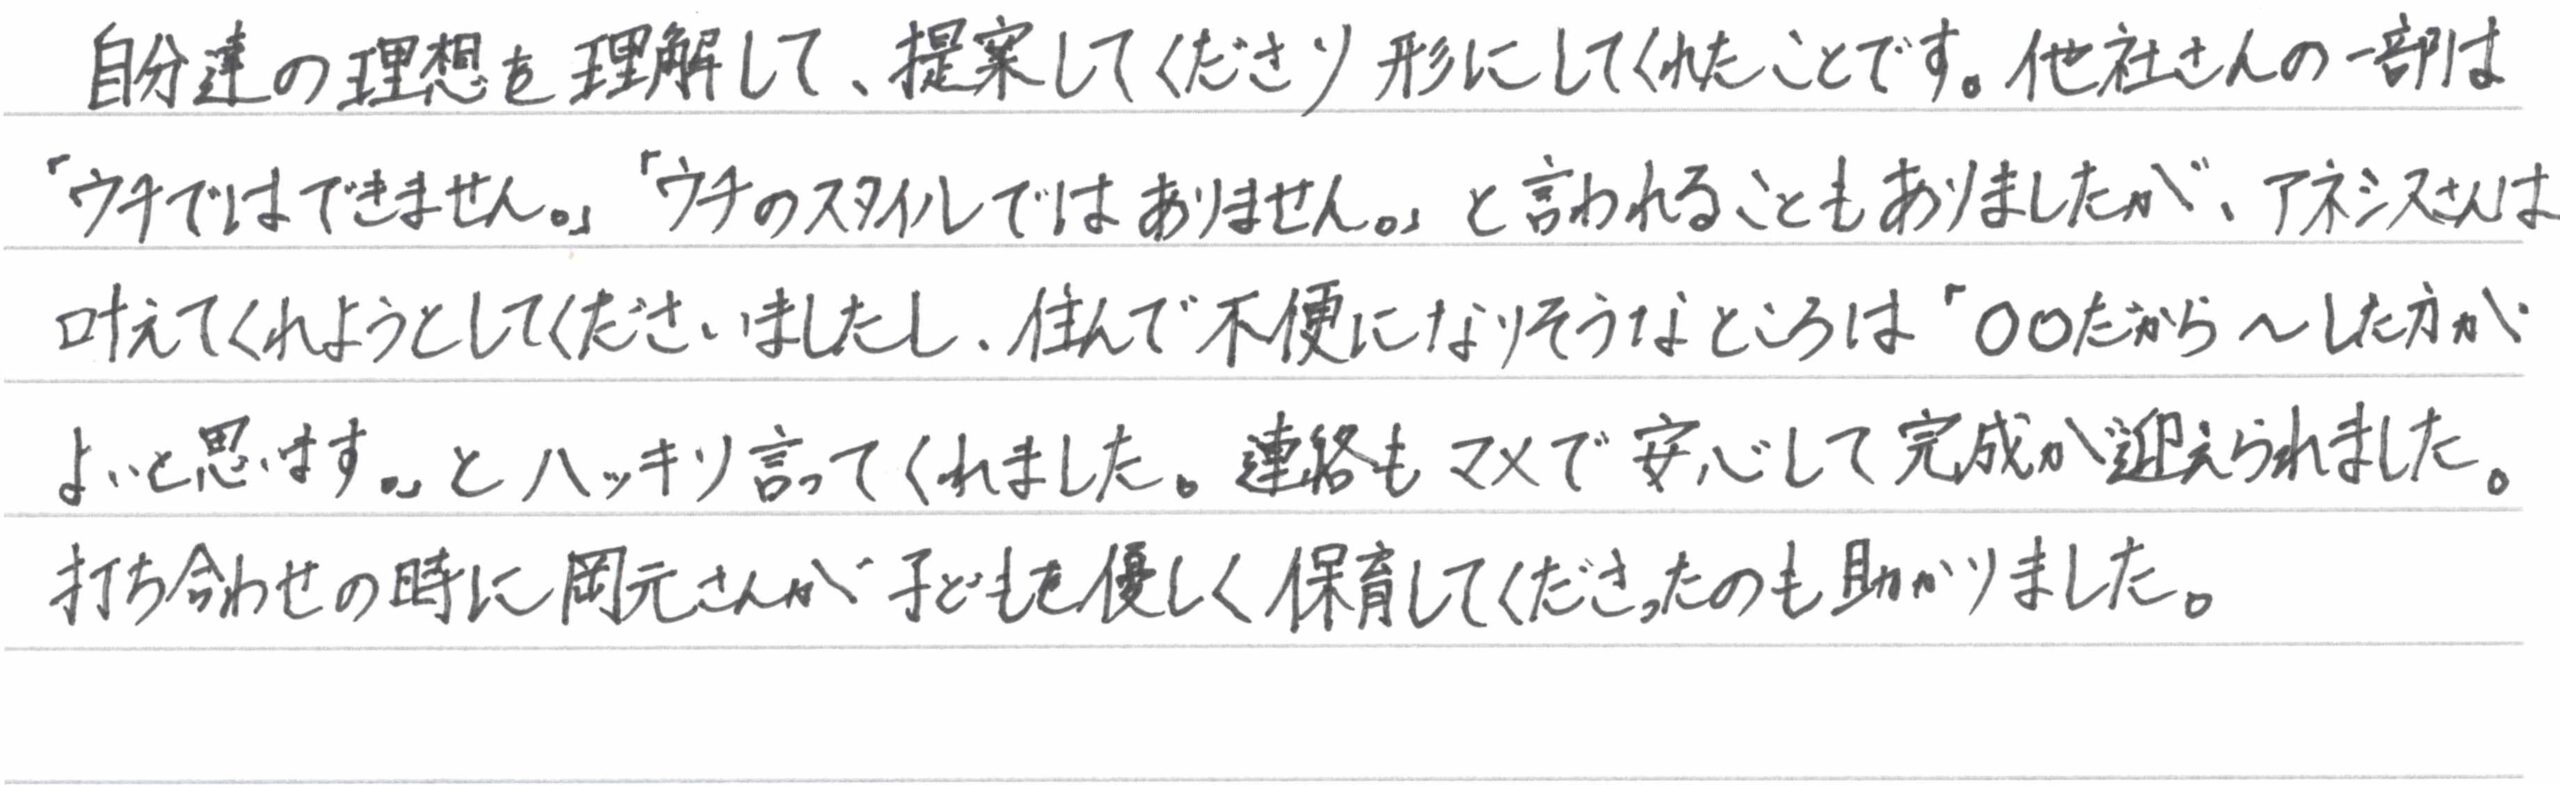 自分達の理想を理解して、提案してくださり形にしてくれたことです。他社さんの一部は
「ウチではできません。」「ウチのスタイルではありません。」と言われることもありましたが、アネシスさんは
叶えてくれようとしてくださいましたし、住んで不便になりそうなところは「〇〇だから〜した方が
よいと思います。」とハッキリ言ってくれました。連絡もマメで安心して完成が迎えられました。
打ち合わせの時に岡元さんが子どもを優しく保育してくださったのも助かりました。